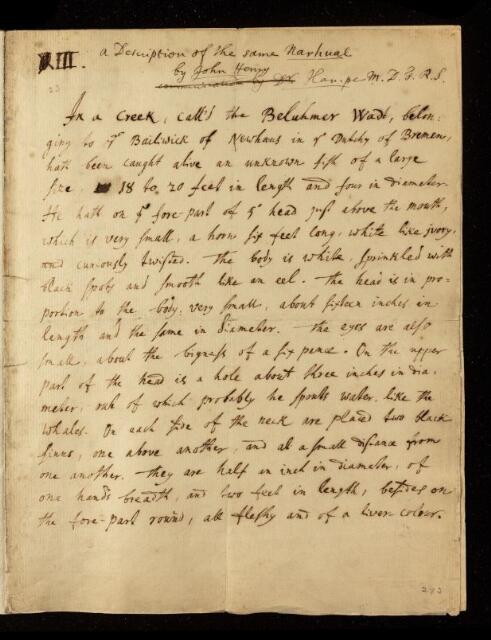 VIII. a Description of the same Narhual
by John Henry
communicated by Dr. Hampe M. D. F. R. S.
23
In a Creek, call'd the Beluhmer Wadt, belon:
ging to ye Bailiwick of Newhaus in ye Dutchy of Bremen,
hath been caught alive an unknown fish of a large
size, 18 to 20 feet in length and four in diameter.
He hath on ye fore part of ye head just above the mouth,
which is very small, a horn six feet long, white like ivory,
and curiously twisted. The body is white, sprinkled with
black spots and smooth like an eel. The head is in pro-
portion to the body very small, about sixteen inches in
length and the same in diameter. The eyes are also
small, about the bigness of a six pence. On the upper
part of the head is a hole about three inches in dia-
meter, out of which probably he spouts water like the
whales. On each side of the neck are placed two black
finns, one above another, and at a small distance from
one another. They are half an inch in diameter, of
one hands breadth, and two feet in length, besides on
the fore-part round, all fleshy and of a liver-colour.